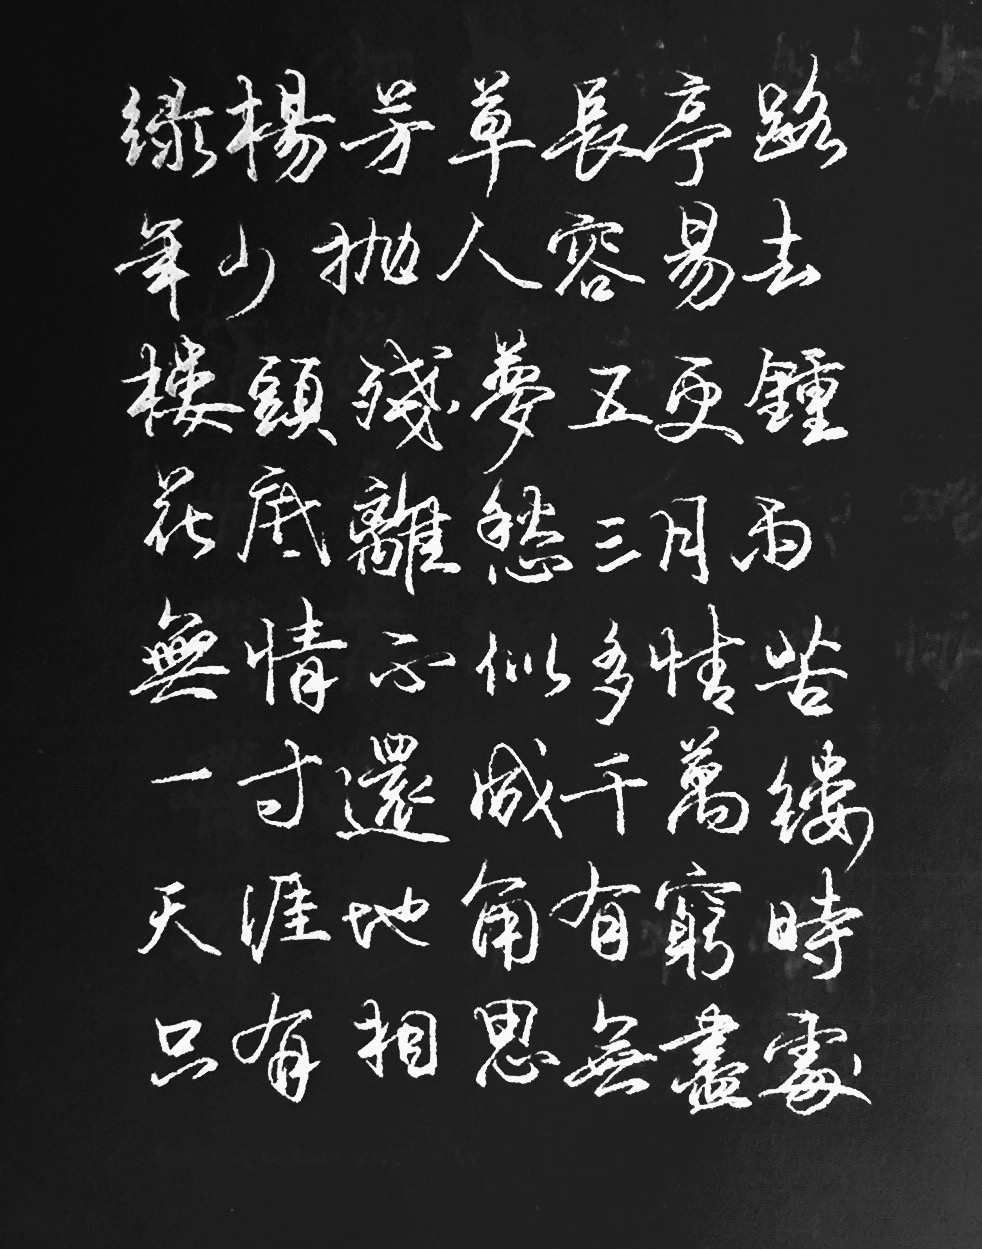 绿楊芳草長亭路
年少抛人容易去
楼頭殘夢五更鍾
花底離愁三月雨
無情不似多情苦
一寸還成千萬縷
天涯地角有窮時
只有相思無盡處